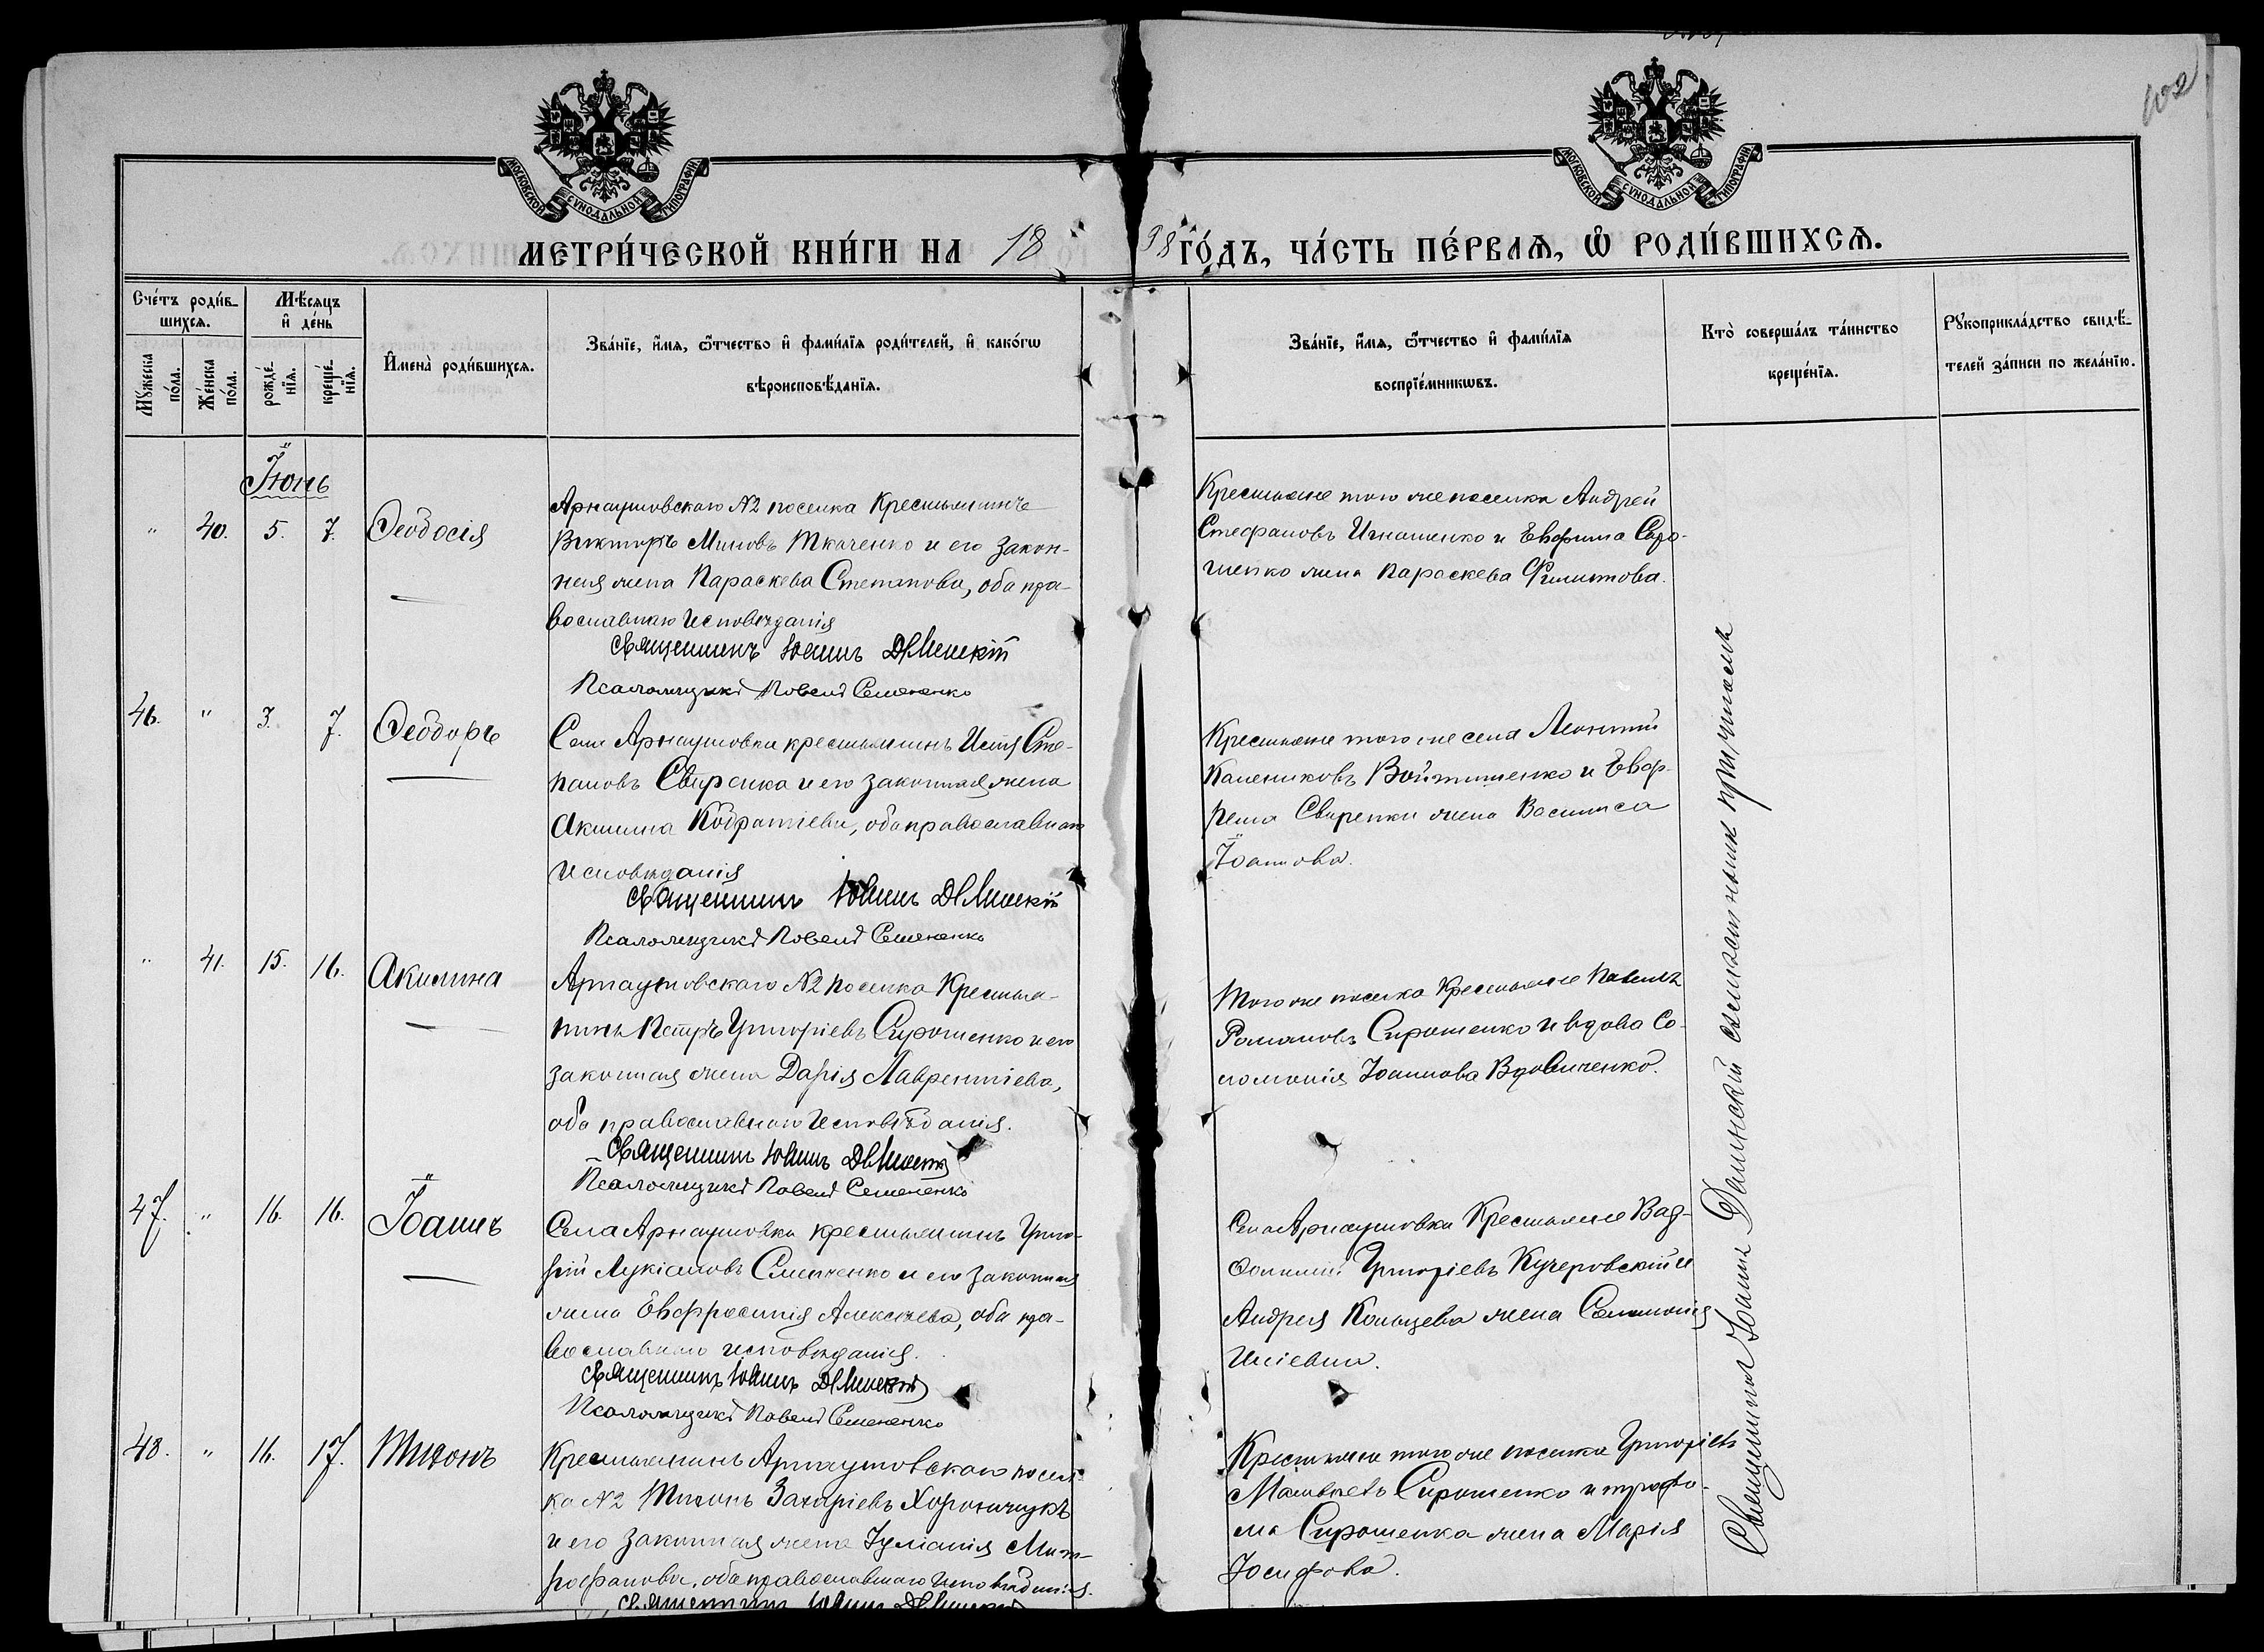 102
МОСКОВСКОЙ СѴНОДАЛЬНОЙ ТИПОГРАФІИ
МОСКОВСКОЙ СѴНОДАЛЬНОЙ ТИПОГРАФІИ
МЕТРИ́ЧЕСКОЙ КНИ́ГИ НА 18 98 ГО́ДЪ, ЧА́СТЬ ПЕ́РВАѦ, Ѡ РОДИ́ВШИХСѦ.
Сче́тъ роди́в-
шихсѧ.
Мꙋ́жеска
по́ла.
Же́нска
по́ла.
Мѣ́сѧцъ
и҆ де́нь
рожде́-
нїѧ.
креще́-
нїѧ.
И҆мена̀ роди́вшихсѧ.
Зва́нїе, и҆́мѧ, ѻ҆́тчество и҆ фами́лїѧ роди́телей, и҆ како́гѡ
вѣроисповѣ́данїѧ.
Зва́нїе, и҆́мѧ, ѻ҆́тчество и҆ фами́лїѧ
воспрїе́мникѡвъ.
Кто̀ соверша́лъ та́инство
креще́нїѧ.
Рꙋкоприкла́дство свидѣ́-
телей за́писи по жела́нїю.
Іюнь
" 40. 5. 7. Ѳеодосія
Арнаутовскаго №2 поселка Крестьянинъ
Викторъ Миновъ Ткаченко и его закон-
ная жена Параскева Степанова, оба пра-
вославнаго исповѣданія
Священникъ Іоаннъ Долинскій
Псаломщикъ Павелъ Семененко
Крестьяне того же поселка Андрей
Стефановъ Игнатенко и
жена Параскева
46. " 3. 7. Ѳеодоръ
Села Арнаутовки крестьянинъ Сте-
пановъ Свиренко и его законная жена
Акилина Кодратіева, оба православнаго
исповѣданія
Священникъ Іоаннъ Долинскій
Псаломщикъ Павелъ Семененко
Крестьяне того же села Леонтій
Калениковъ Войтишенко и Евф-
рема Свиренки жена Васиписа
Іоаннова.
" 41. 15. 16. Акилина
Арнаутовскаго №2 поселка Крестья-
нинъ Петръ Григоріевъ Сирошенко и его
законная жена Дарія Лаврентіева,
оба православнаго исповѣданія.
Священникъ Іоаннъ Долинскій
Псаломщикъ Павелъ Семененко
Того же поселка Крестьяне Павелъ
Романовъ Сирошенко и вдова Со-
ломонія Іоаннова Вдовиченко.
47. " 16. 16. Іоаннъ
Села Арнаутовки крестьянинъ Григо-
рій Лукіановъ и его законная
жена Евфросинія Алексѣева, оба пра-
вославнаго исповѣданія.
Священникъ Іоаннъ Долинскій
Псаломщикъ Павелъ Семененко
Села Арнаутовки Крестьяне
Григоріевъ Кучеровскій и
Андрея Кольцева жена Соломонія
Иліевна.
48. " 16. 17. Тихонъ
Крестьянинъ Арнаутовскаго посел-
ка №2 Тихонъ Захаріевъ Хорончукъ
и его законная жена Іуліанія Мит-
рофанова, оба православнаго исповѣданія.
Священникъ Іоаннъ Долинскій
Крестьяне того же поселка Григорій
Матвѣевъ Сирошенко и Трофи-
ма Сирошенка жена Марія
Іосифова.
Священникъ Іоаннъ Долинскій съ причтомъ